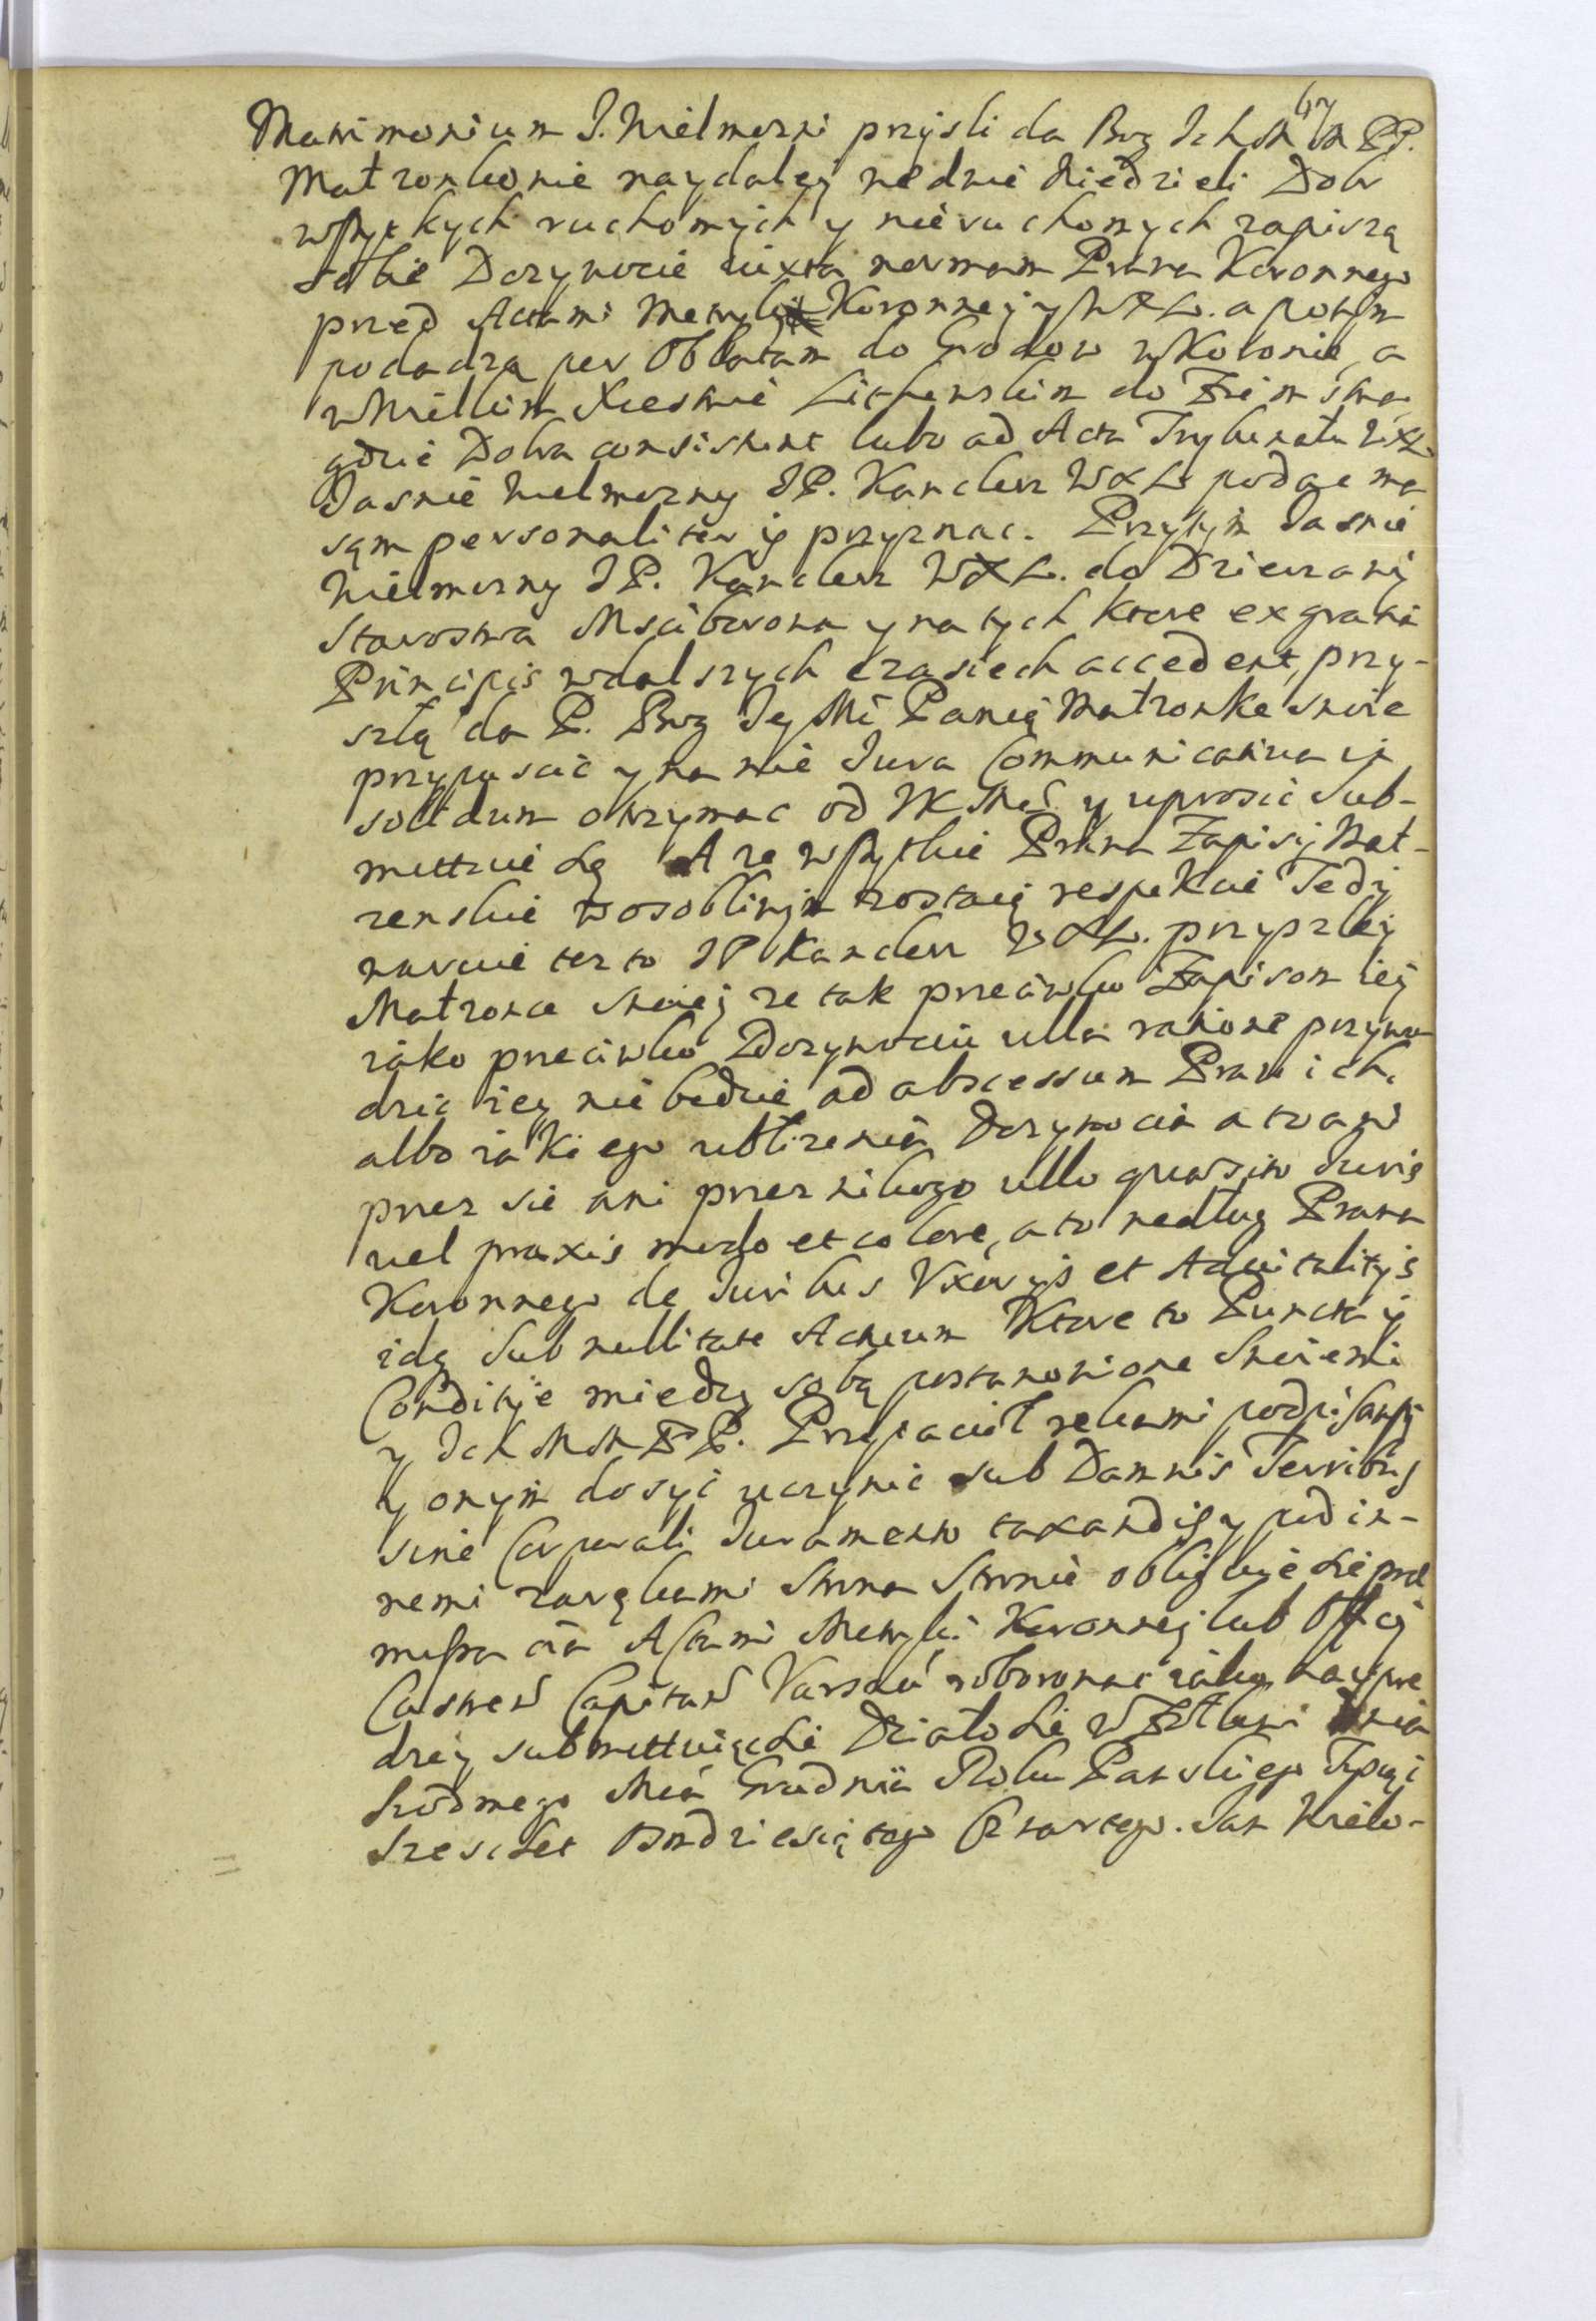 Matrimonium J. Wielmozni przysli da Bog Ich Mść PP.
Małzonkowie naydaley we dwie Niedzieli Dobr
wszystkych ruchomych y nieruchomych zapiszą
sobie Dozywocie iuxta normam Prawa Koronnego
przed Actami Metryki Koronney y WXL. a potym
podadzą per Oblatam do Grodow w Koronie, a
w Wielkim Xięstwie Litewskim do Ziemstwa,
gdzie Dobra consistunt lubo ad Acta Trybunału WXL.
Jasnie Wielmozny JP. Kanclerz WXL podac ma
sąm personaliter ÿ przyznac. Przytym Jasnie
Wielmozny JP. Kanclerz WXL. do Dzierzawy
Starostwa Mscibowona y na tych ktore ex gratia
Principis w dalszych czasiech accedent, przy-
szłą da P. Bog Jey Mć Panią Małzonke swoie
przypuscic y na nie Jura Communicativa in
solidum otrzymac od JK Mci y uprosic sub-
mittuie się A ze wszytkie Prawa Zapisy Mał-
zenskie w osobliwym zostaią respekcie Tedy
waruie tez to JP Kanclerz WXL. przyszłey
Małzonce swoiey ze tak przeciwko Zapisom iey
iako przeciwko Dozywociu ulla ratione przywo
dzic iey nie będzie ad abscessum Praw ich,
albo iakiego ubliżenia Dozywocia a to ani
przez sie ani przez nikogo ullo quaesito Juris
vel praxis modo et colore, a to według Prawa
Koronnego de Juribus Vxorijs et Advitalitijs
idą sub nullitate Actorum Ktore to Puncta ÿ
Conditije miedzy sobą postanowione Swoiemi
y Ich MM PP. Przyiacioł rekami podpisawszy
y onym dosyc uczynic sub Damnis Terribus
sine Corporali Juramento taxandis y pod in-
nemi zarękami Strona Stronie obliguie sie prae
missa oia Actami Metryki Koronney lub Officij
Castren Capitan Varsau roborowac iako nayprę
dzey submittuiąc sie Działo sie w Zołkwi Dnia
Siodmego Mca Grudnia Roku Panskiego Tysiąc
Szescset Osmdziesiątego Czwartego. Jan Krolo-